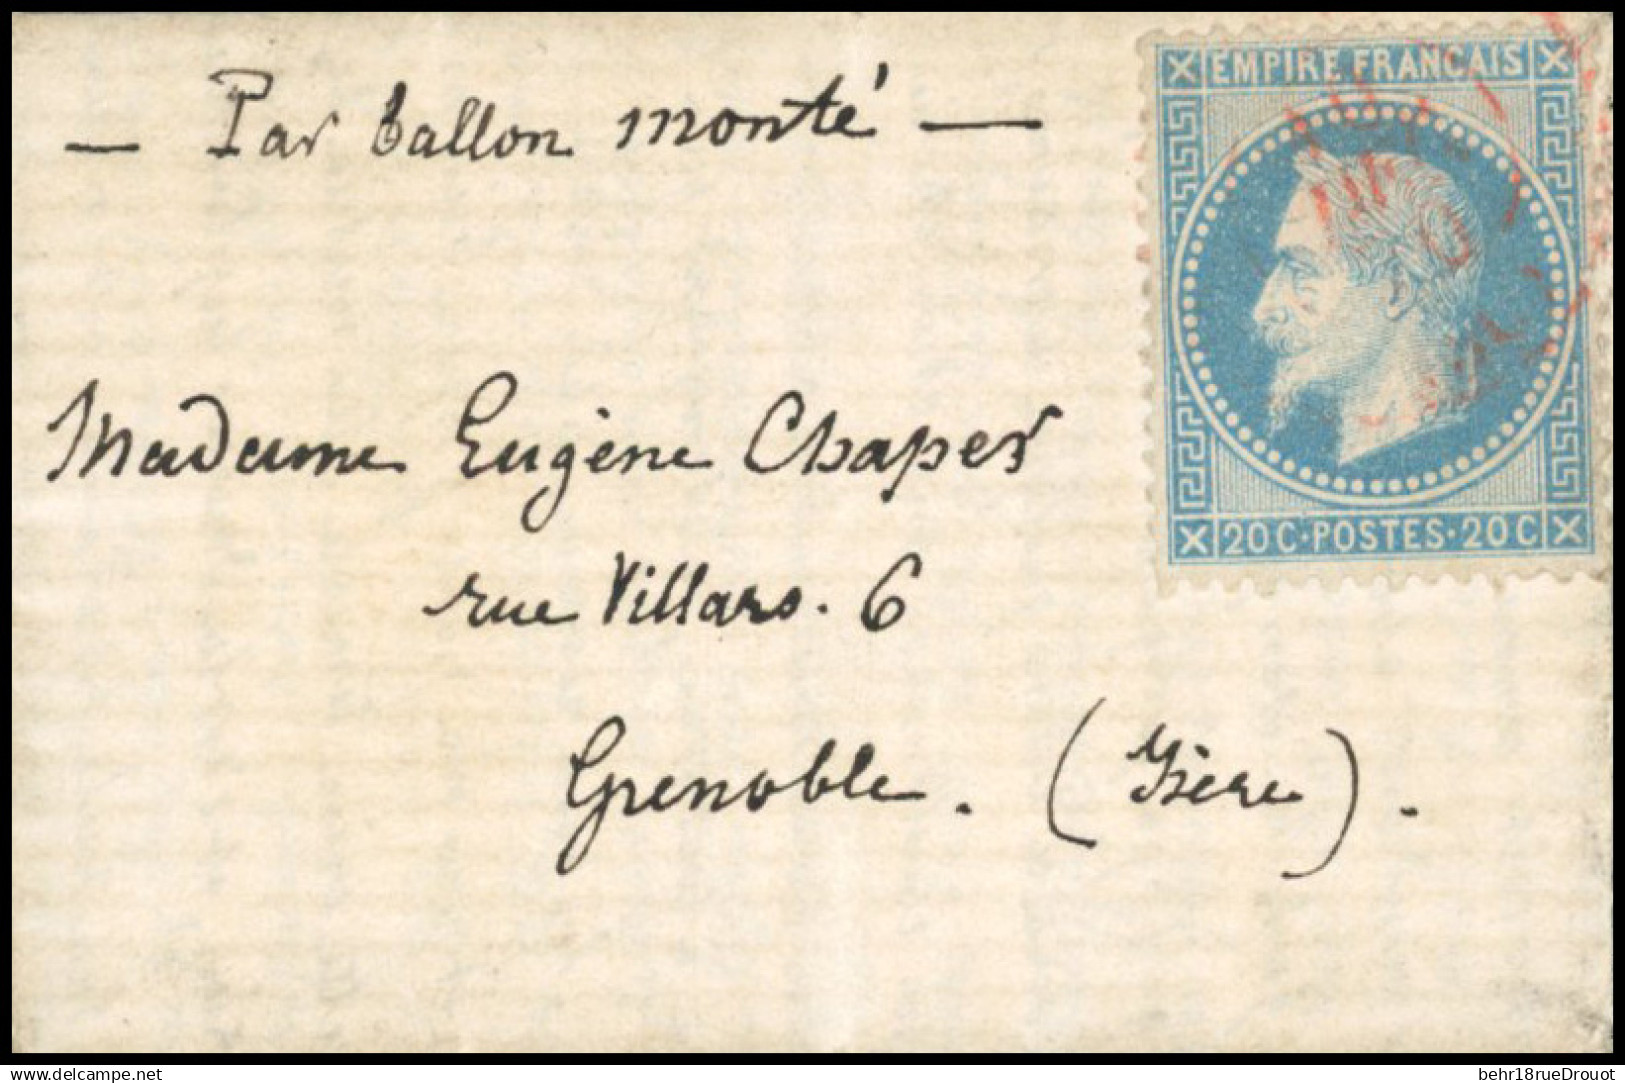 — Par ballon monté —
EMPIRE FRANCAIS
Madame Eugène Chaper
20C·POSTES·20C
rue Villars. 6
Grenoble. (Isère).
delcampe.net
behr18rueDrouot